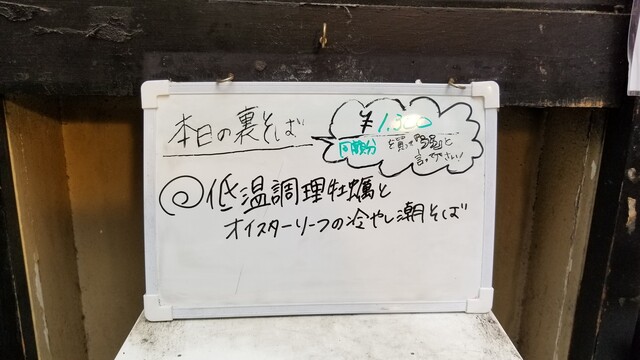 本日の裏そば
¥1,300
円前分
を買って『裏』と
言って下さい!
低温調理牡蠣と
オイスターリーフの冷やし潮そば